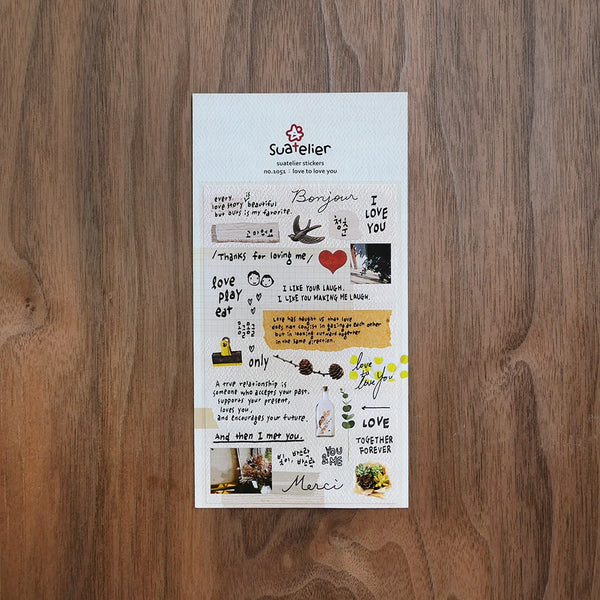 suatelier
suatelier stickers
no.1051 : love to love you
every is
love story beautiful
but ours is my favorite.
Bonjour
I
LOVE
YOU
고마워요
청춘
Thanks for loving me
love
play
eat
I LIKE YOUR LAUGH.
I LIKE YOU MAKING ME LAUGH.
Life has taught us that love
does not consist in gazing at each other
but in looking outward together
in the same direction.
only
love
to
love you
A true relationship is
someone who accepts your past,
supports your present,
loves you,
and encourages your future.
LOVE
And then I met you.
TOGETHER
FOREVER
빛이, 바스락
바스락
YOU
& ME
Merci